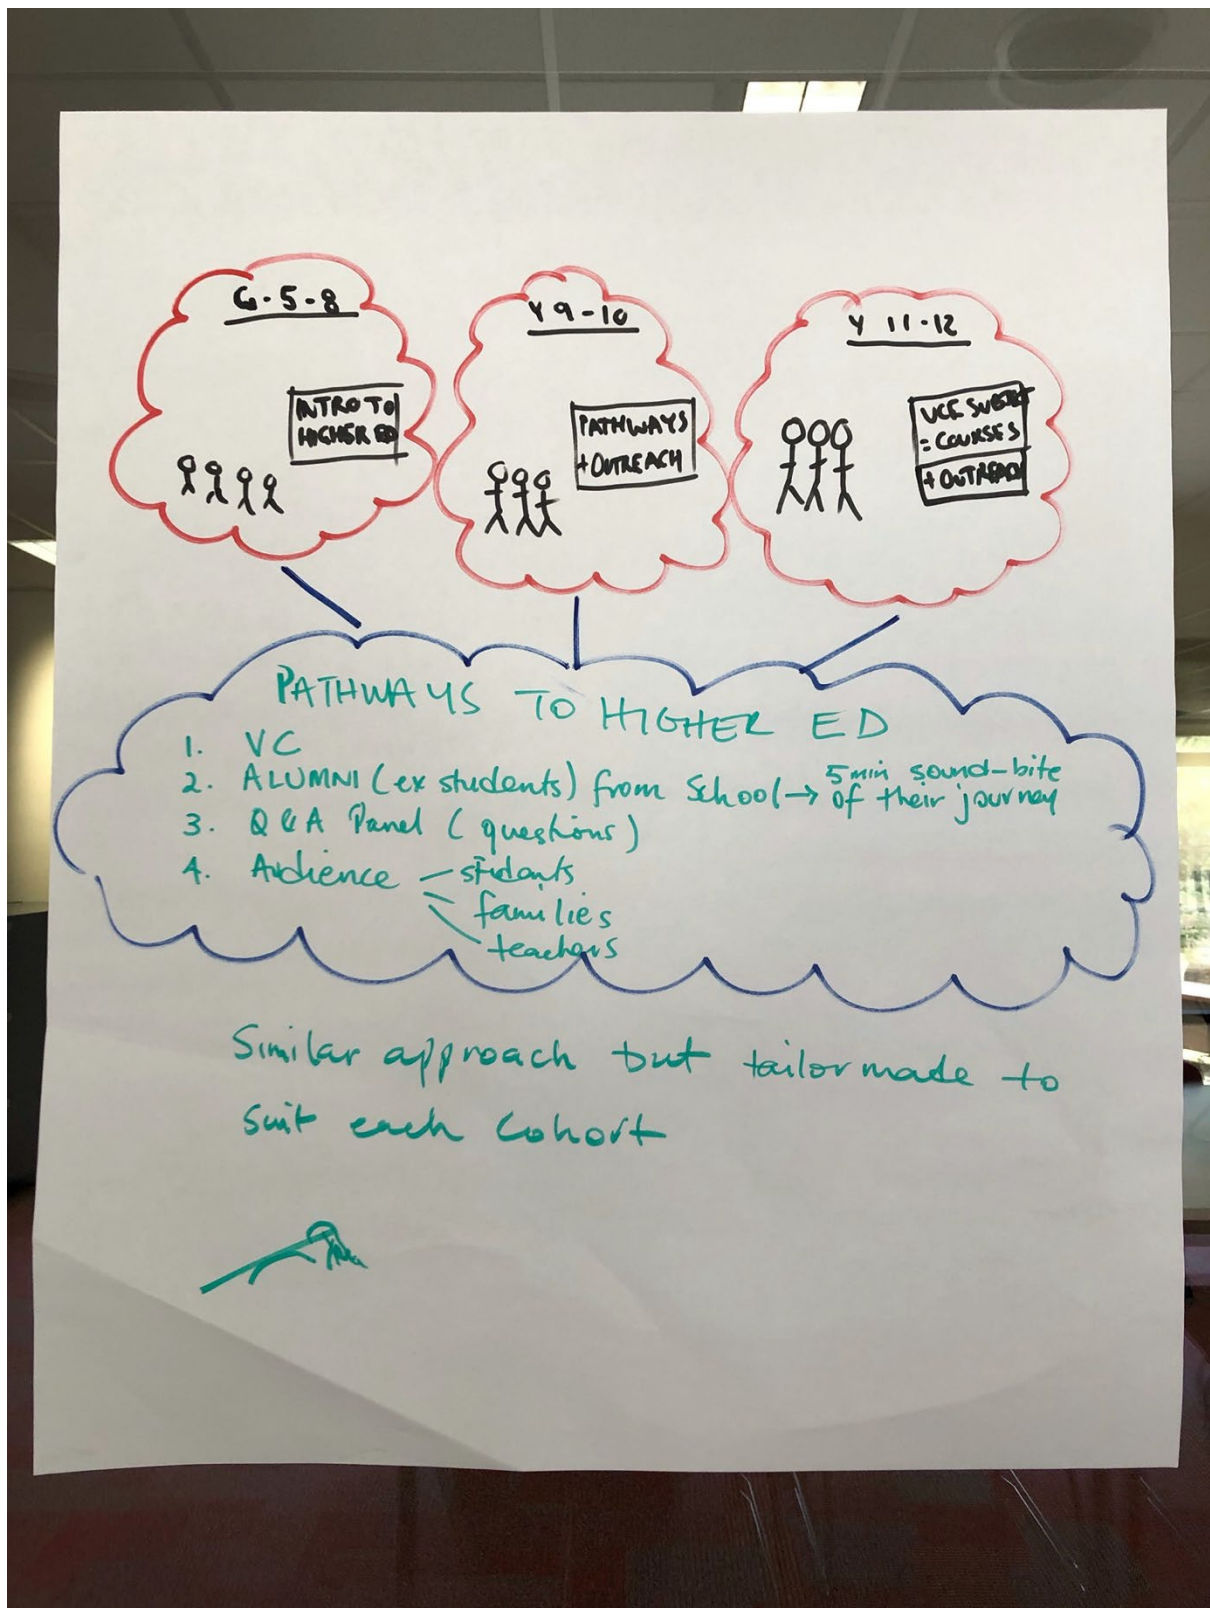 G-5-8
INTRO TO
HIGHER ED
Y 9-10
PATHWAYS
+ OUTREACH
Y 11-12
VCE SUBJECT
= COURSES
+ OUTREACH
PATHWAYS TO HIGHER ED
1. VC
2. ALUMNI (ex students) from School → 5 min sound-bite
of their journey
3. Q&A Panel (questions)
4. Audience – students
families
teachers
Similar approach but tailormade to
suit each cohort